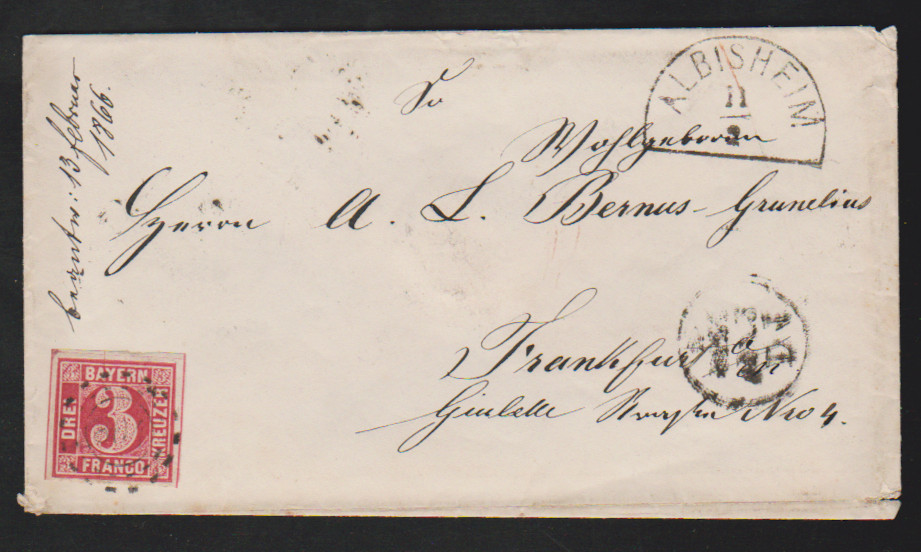 beantw: 13 februar
1866.
ALBISHEIM
11
2
Sr
Wohlgeboren
Herrn A. L. Bernus-Grunelius
Frankfurt a/m
Straße Nro 4.
BAYERN
DREI
3
KREUZER
FRANCO